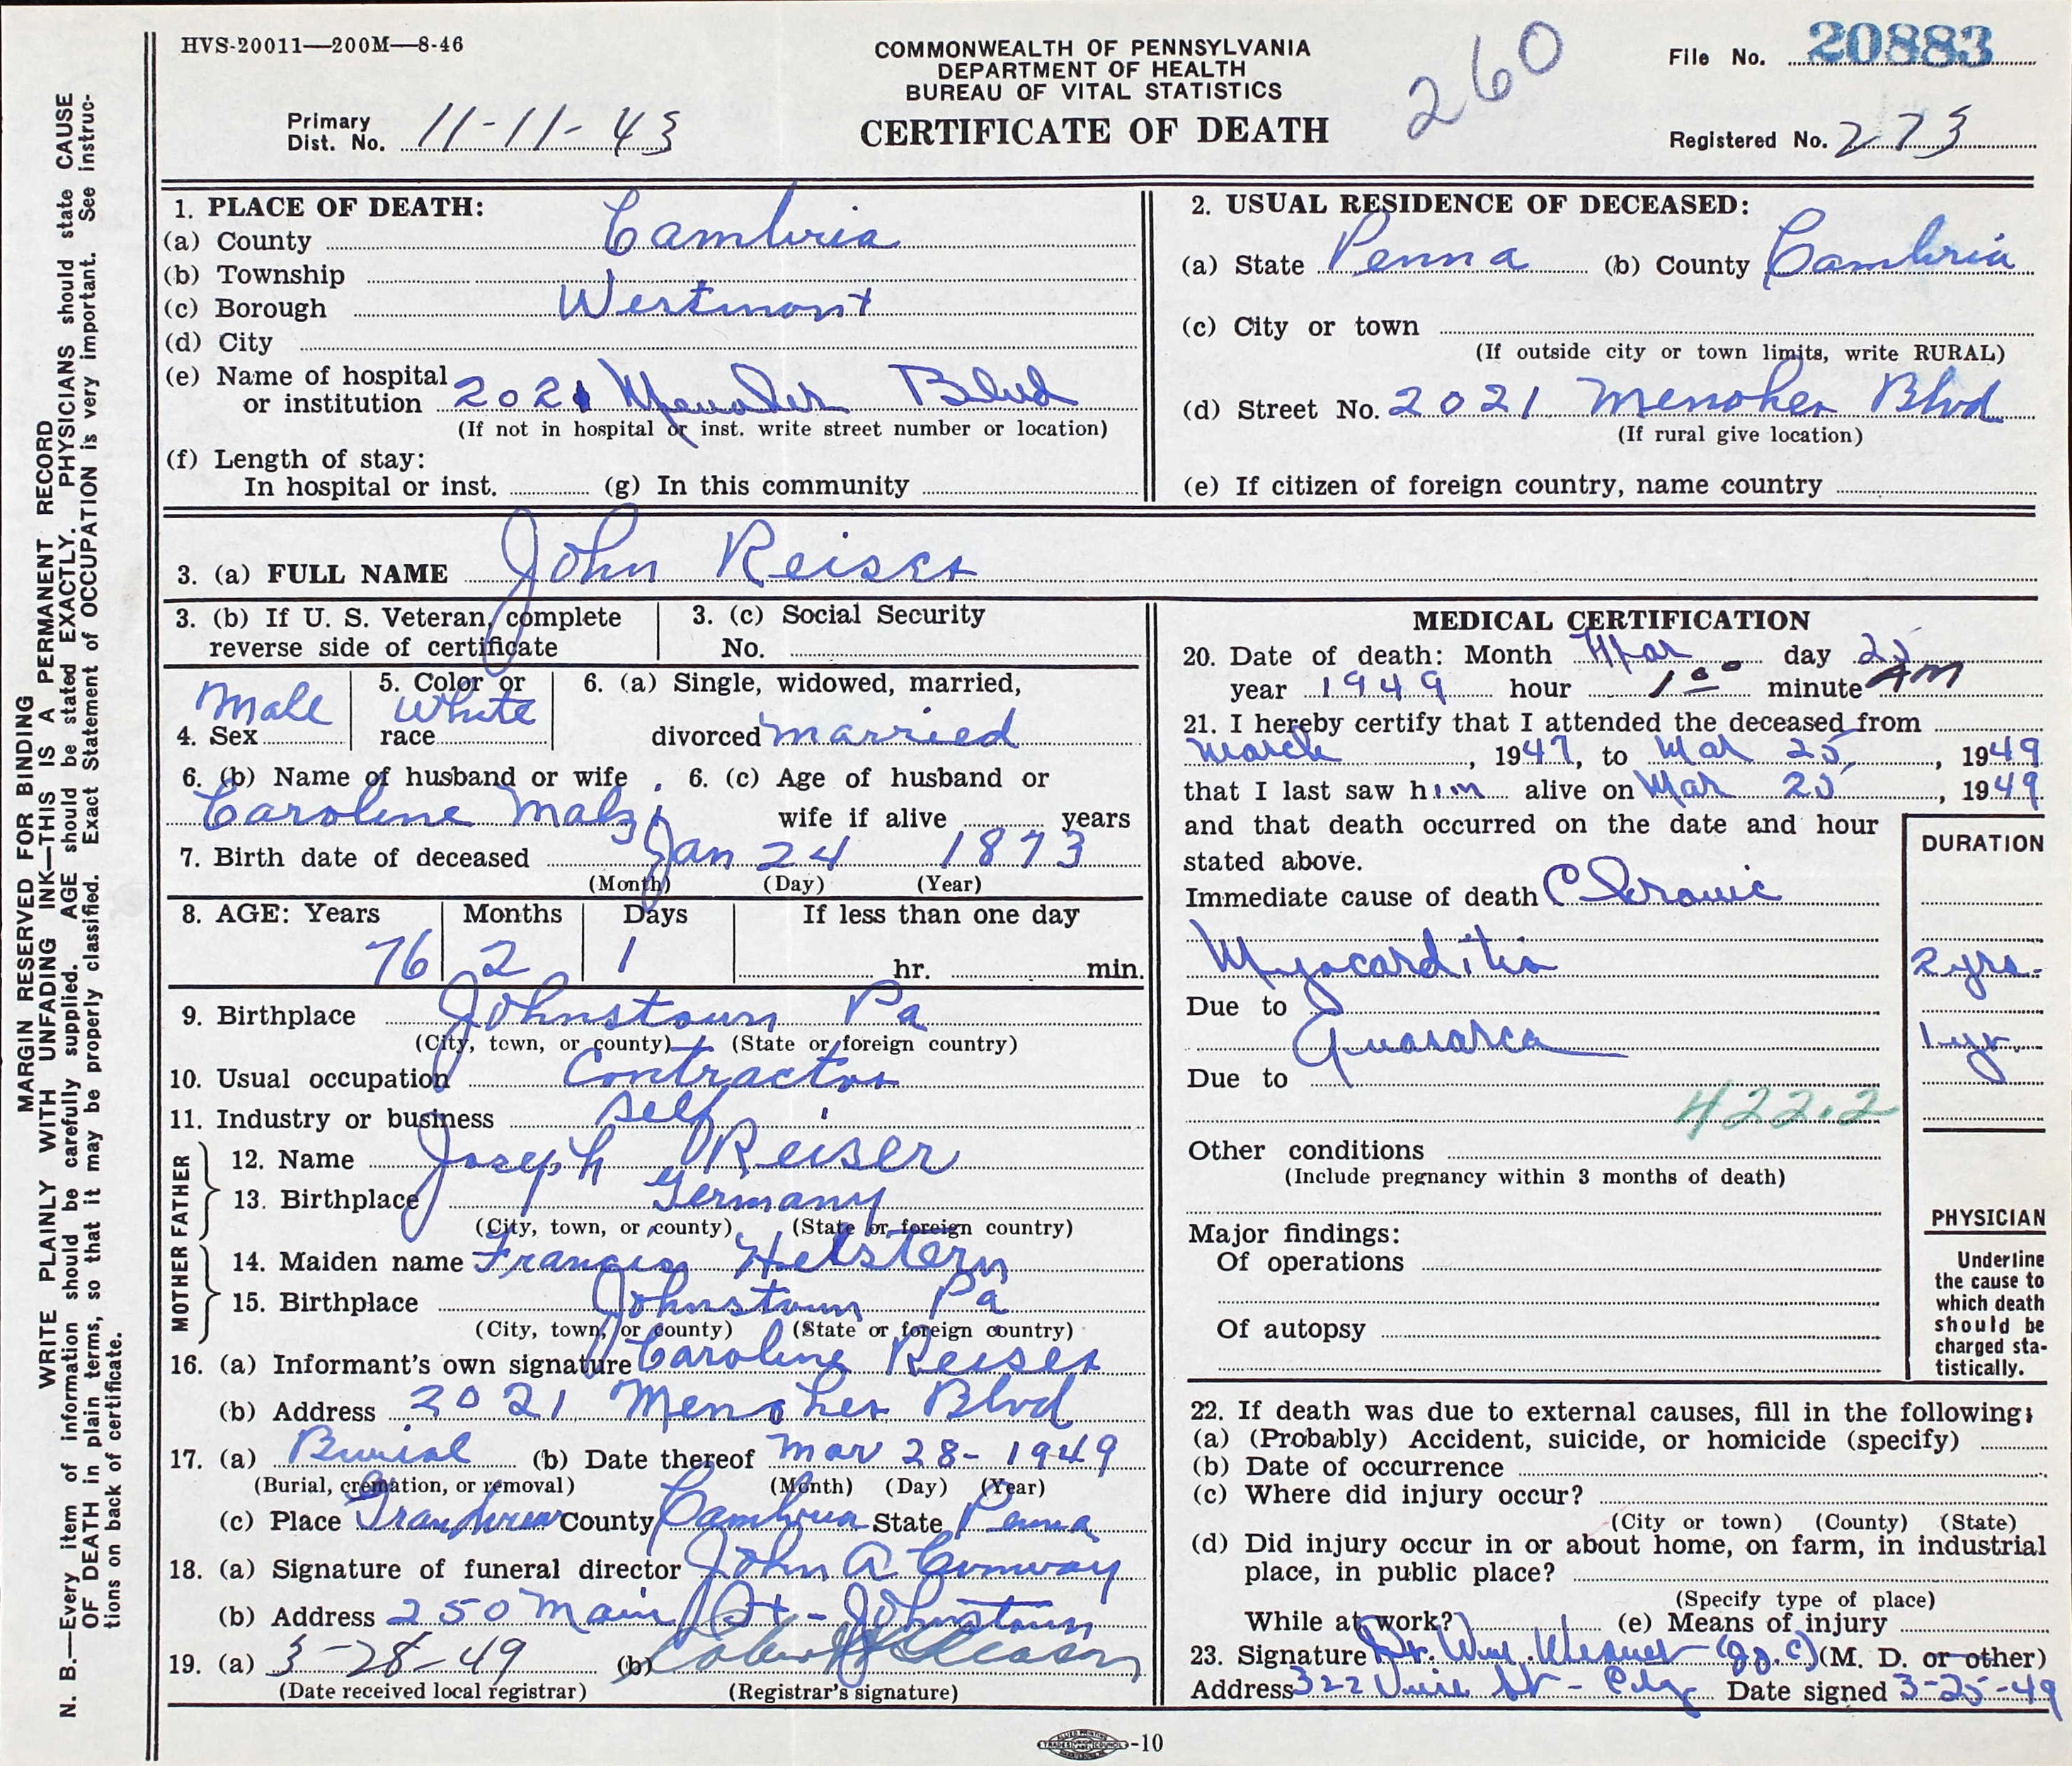 HVS-20011—200M—8-46
COMMONWEALTH OF PENNSYLVANIA
DEPARTMENT OF HEALTH
BUREAU OF VITAL STATISTICS
CERTIFICATE OF DEATH
260
File No. 20883
Primary
Dist. No. 11-11-43
Registered No. 273
MARGIN RESERVED FOR BINDING
WRITE PLAINLY WITH UNFADING INK—THIS IS A PERMANENT RECORD
N. B.—Every item of information should be carefully supplied. AGE should be stated EXACTLY. PHYSICIANS should state CAUSE
OF DEATH in plain terms, so that it may be properly classified. Exact Statement of OCCUPATION is very important. See instruc-
tions on back of certificate.
1. PLACE OF DEATH:
(a) County Cambria
(b) Township
(c) Borough Westmont
(d) City
(e) Name of hospital
or institution 2021 Menoher Blvd
(If not in hospital or inst. write street number or location)
(f) Length of stay:
In hospital or inst. (g) In this community
2. USUAL RESIDENCE OF DECEASED:
(a) State Penna (b) County Cambria
(c) City or town
(If outside city or town limits, write RURAL)
(d) Street No. 2021 Menoher Blvd
(If rural give location)
(e) If citizen of foreign country, name country
3. (a) FULL NAME John Reiser
3. (b) If U. S. Veteran, complete
reverse side of certificate
3. (c) Social Security
No.
4. Sex Male
5. Color or
race White
6. (a) Single, widowed, married,
divorced married
6. (b) Name of husband or wife
Caroline Malzi
6. (c) Age of husband or
wife if alive years
7. Birth date of deceased Jan 24 1873
(Month) (Day) (Year)
8. AGE: Years Months Days If less than one day
76 2 1 hr. min.
9. Birthplace Johnstown Pa
(City, town, or county) (State or foreign country)
10. Usual occupation Contractor
11. Industry or business self
FATHER
12. Name Joseph Reiser
13. Birthplace Germany
(City, town, or county) (State or foreign country)
MOTHER
14. Maiden name Francis Helstern
15. Birthplace Johnstown Pa
(City, town, or county) (State or foreign country)
16. (a) Informant's own signature Caroline Reiser
(b) Address 2021 Menoher Blvd
17. (a) Burial (b) Date thereof Mar 28-1949
(Burial, cremation, or removal) (Month) (Day) (Year)
(c) Place Grandview County Cambria State Penna
18. (a) Signature of funeral director John A Conway
(b) Address 250 Main St - Johnstown
19. (a) 3-28-49 (b) Gleason
(Date received local registrar) (Registrar's signature)
MEDICAL CERTIFICATION
20. Date of death: Month Mar day 25
year 1949 hour 1 00 minute AM
21. I hereby certify that I attended the deceased from
March, 1947, to Mar 25, 1949
that I last saw him alive on Mar 25, 1949
and that death occurred on the date and hour
stated above.
DURATION
Immediate cause of death Chronic
Myocarditis 2 yrs.
Due to
Anasarca 1 yr.
Due to
422.2
Other conditions
(Include pregnancy within 3 months of death)
Major findings:
Of operations
Of autopsy
PHYSICIAN
Underline
the cause to
which death
should be
charged sta-
tistically.
22. If death was due to external causes, fill in the following:
(a) (Probably) Accident, suicide, or homicide (specify)
(b) Date of occurrence
(c) Where did injury occur?
(City or town) (County) (State)
(d) Did injury occur in or about home, on farm, in industrial
place, in public place?
(Specify type of place)
While at work? (e) Means of injury
23. Signature Dr. Wm. (M. D. or other)
Address 322 Vine St - City Date signed 3-25-49
-10